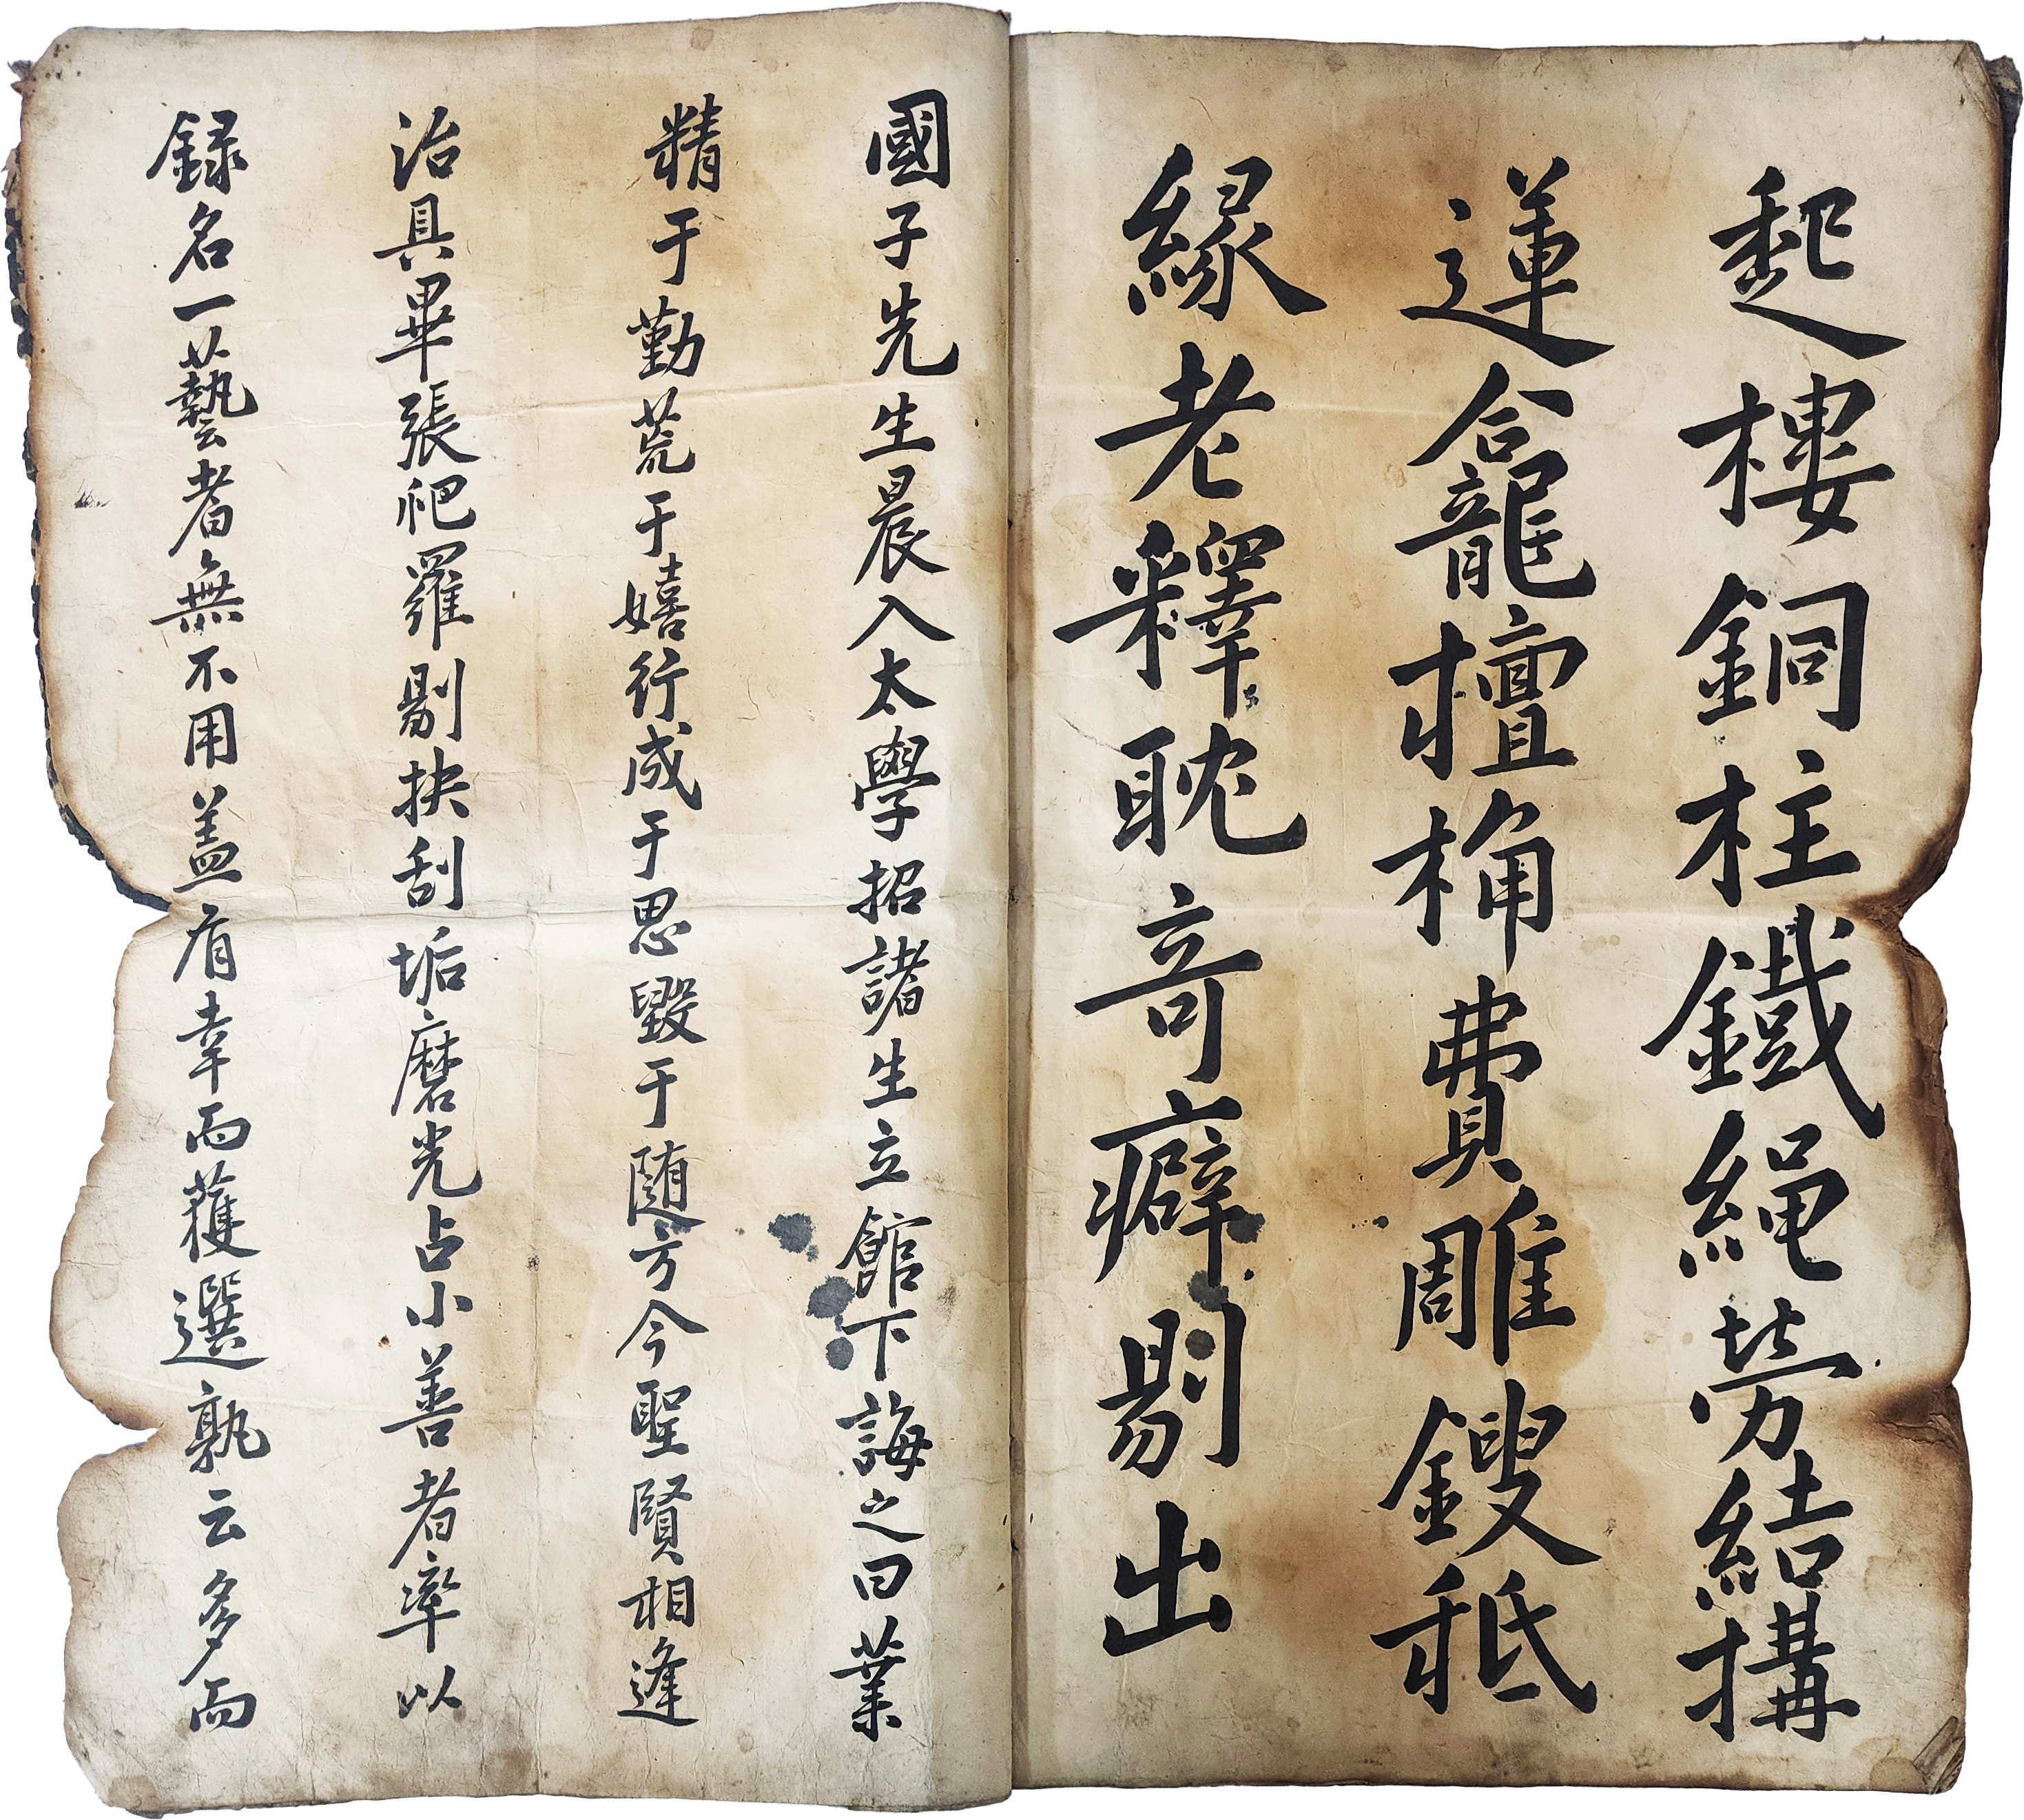 起樓銅柱鐵繩勞結構
蓮龕檀桷費雕鎪秖
緣老釋耽竒癖剔出
國子先生晨入太學招諸生立館下誨之曰業
精于勤荒于嬉行成于思毀于随方今聖賢相逢
治具畢張爬羅剔抉刮垢磨光占小善者率以
録名一藝者無不用盖有幸而獲選孰云多而